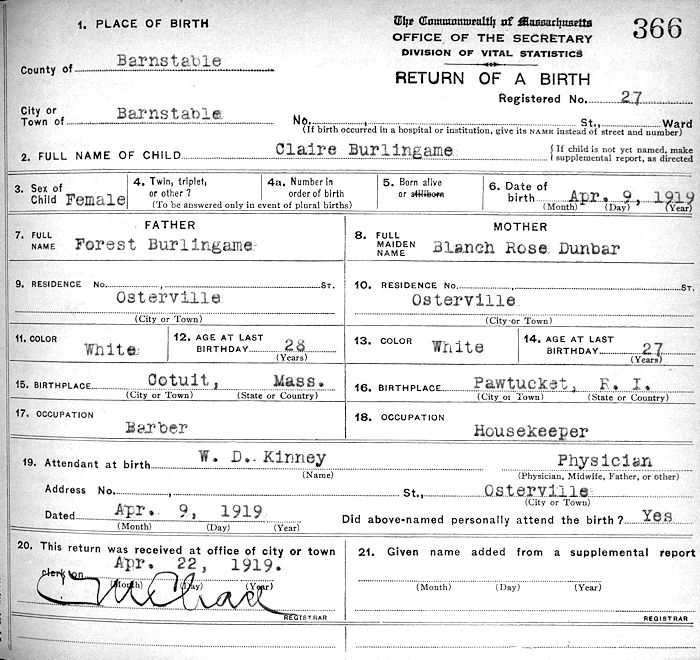 1. PLACE OF BIRTH
The Commonwealth of Massachusetts
366
OFFICE OF THE SECRETARY
DIVISION OF VITAL STATISTICS
RETURN OF A BIRTH
County of Barnstable
Registered No. 27
City or Town of Barnstable
No. , St., Ward
(If birth occurred in a hospital or institution, give its NAME instead of street and number)
2. FULL NAME OF CHILD Claire Burlingame
{ If child is not yet named, make supplemental report, as directed
3. Sex of Child Female
4. Twin, triplet, or other?
4a. Number in order of birth
(To be answered only in event of plural births)
5. Born alive or stillborn
6. Date of birth Apr. 9, 1919
(Month) (Day) (Year)
FATHER
7. FULL NAME Forest Burlingame
MOTHER
8. FULL MAIDEN NAME Blanch Rose Dunbar
9. RESIDENCE No. ST.
Osterville
(City or Town)
10. RESIDENCE No. ST.
Osterville
(City or Town)
11. COLOR White
12. AGE AT LAST BIRTHDAY 28
(Years)
13. COLOR White
14. AGE AT LAST BIRTHDAY 27
(Years)
15. BIRTHPLACE Cotuit, Mass.
(City or Town) (State or Country)
16. BIRTHPLACE Pawtucket, R. I.
(City or Town) (State or Country)
17. OCCUPATION
Barber
18. OCCUPATION
Housekeeper
19. Attendant at birth W. D. Kinney Physician
(Name) (Physician, Midwife, Father, or other)
Address No. , St., Osterville
(City or Town)
Dated Apr. 9, 1919
(Month) (Day) (Year)
Did above-named personally attend the birth? Yes
20. This return was received at office of city or town
clerk on Apr. 22, 1919.
(Month) (Day) (Year)
REGISTRAR
21. Given name added from a supplemental report
(Month) (Day) (Year)
REGISTRAR